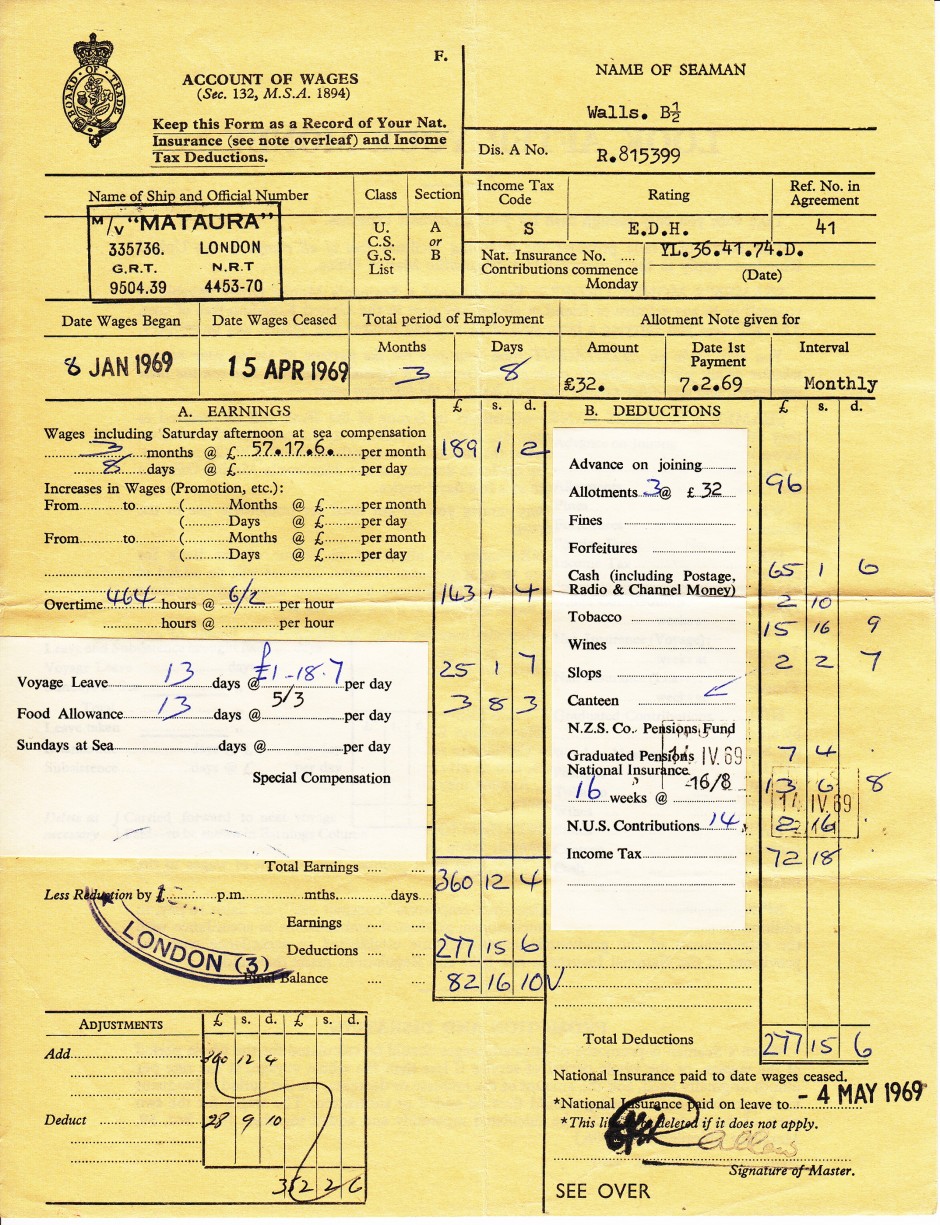 BOARD OF TRADE
F.
ACCOUNT OF WAGES
(Sec. 132, M.S.A. 1894)
Keep this Form as a Record of Your Nat.
Insurance (see note overleaf) and Income
Tax Deductions.
NAME OF SEAMAN
Walls. B½
Dis. A No. R.815399
Name of Ship and Official Number
M/V "MATAURA"
335736. LONDON
G.R.T. N.R.T
9504.39 4453-70
Class Section
U. A
C.S. or
G.S. B
List
Income Tax Code Rating Ref. No. in Agreement
S E.D.H. 41
Nat. Insurance No. .... YL.36.41.74.D.
Contributions commence
Monday (Date)
Date Wages Began Date Wages Ceased Total period of Employment Allotment Note given for
Months Days Amount Date 1st Payment Interval
8 JAN 1969 15 APR 1969 3 8 £32. 7.2.69 Monthly
A. EARNINGS £ s. d.
Wages including Saturday afternoon at sea compensation
3 months @ £ 57.17.6. per month 189 1 2
8 days @ £ per day
Increases in Wages (Promotion, etc.):
From to ( Months @ £ per month
( Days @ £ per day
From to ( Months @ £ per month
( Days @ £ per day
Overtime 464 hours @ 6/2 per hour 143 1 4
hours @ per hour
Voyage Leave 13 days @ £1-18.7 per day 25 1 7
Food Allowance 13 days @ 5/3 per day 3 8 3
Sundays at Sea days @ per day
Special Compensation
Total Earnings .... .... 360 12 4
Less Reduction by £ p.m. mths. days
Earnings .... ....
Deductions .... .... 277 15 6
Final Balance .... .... 82 16 10
LONDON (3)
ADJUSTMENTS £ s. d. £ s. d.
Add 360 12 4
Deduct 28 9 10
352 2 6
B. DEDUCTIONS £ s. d.
Advance on joining
Allotments 3 @ £ 32 96
Fines
Forfeitures
Cash (including Postage, 65 1 6
Radio & Channel Money)
Tobacco 2 10
Wines 15 16 9
Slops 2 2 7
Canteen
N.Z.S. Co. Pensions Fund
Graduated Pensions 7 4
14 IV 69
National Insurance
16 weeks @ -16/8 13 6 8
14 IV 69
N.U.S. Contributions 14 2 16
Income Tax 72 18
Total Deductions 277 15 6
National Insurance paid to date wages ceased.
*National Insurance paid on leave to - 4 MAY 1969
*This line deleted if it does not apply.
Signature of Master.
SEE OVER